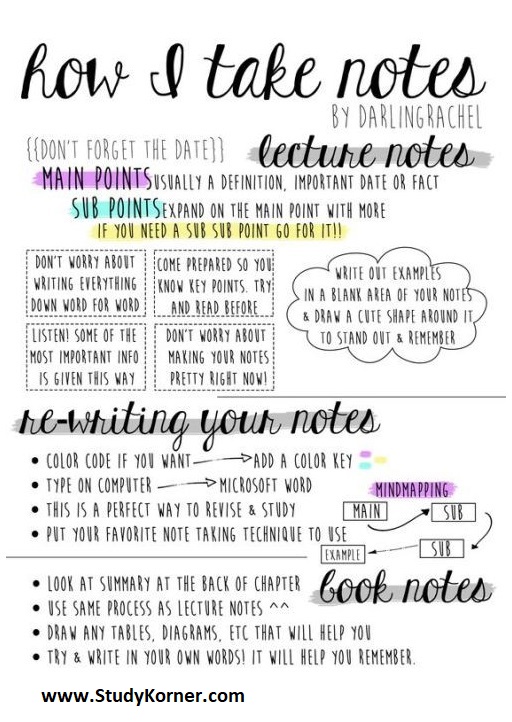 how I take notes
BY DARLINGRACHEL
{{DON'T FORGET THE DATE}}
lecture notes
MAIN POINTS USUALLY A DEFINITION, IMPORTANT DATE OR FACT
SUB POINTS EXPAND ON THE MAIN POINT WITH MORE
IF YOU NEED A SUB SUB POINT GO FOR IT!!
DON'T WORRY ABOUT
WRITING EVERYTHING
DOWN WORD FOR WORD
COME PREPARED SO YOU
KNOW KEY POINTS. TRY
AND READ BEFORE
LISTEN! SOME OF THE
MOST IMPORTANT INFO
IS GIVEN THIS WAY
DON'T WORRY ABOUT
MAKING YOUR NOTES
PRETTY RIGHT NOW!
WRITE OUT EXAMPLES
IN A BLANK AREA OF YOUR NOTES
& DRAW A CUTE SHAPE AROUND IT
TO STAND OUT & REMEMBER
re-writing your notes
• COLOR CODE IF YOU WANT → ADD A COLOR KEY
• TYPE ON COMPUTER → MICROSOFT WORD
• THIS IS A PERFECT WAY TO REVISE & STUDY
• PUT YOUR FAVORITE NOTE TAKING TECHNIQUE TO USE
MINDMAPPING
MAIN
SUB
SUB
EXAMPLE
book notes
• LOOK AT SUMMARY AT THE BACK OF CHAPTER
• USE SAME PROCESS AS LECTURE NOTES ^^
• DRAW ANY TABLES, DIAGRAMS, ETC THAT WILL HELP YOU
• TRY & WRITE IN YOUR OWN WORDS! IT WILL HELP YOU REMEMBER.
www.StudyKorner.com